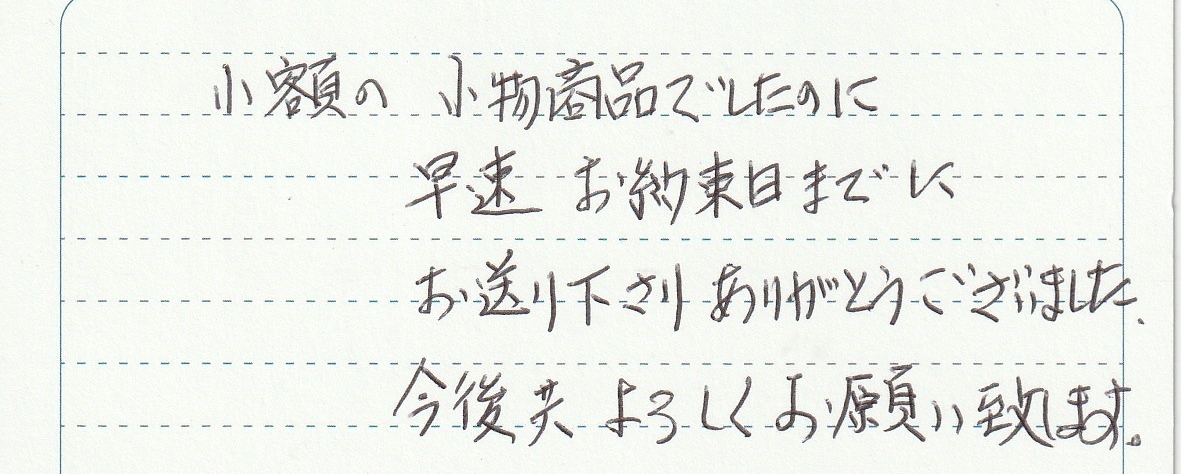 小額の 小物商品でしたのに
早速 お約束日までに
お送り下さりありがとうございました.
今後共 よろしくお願い致します。